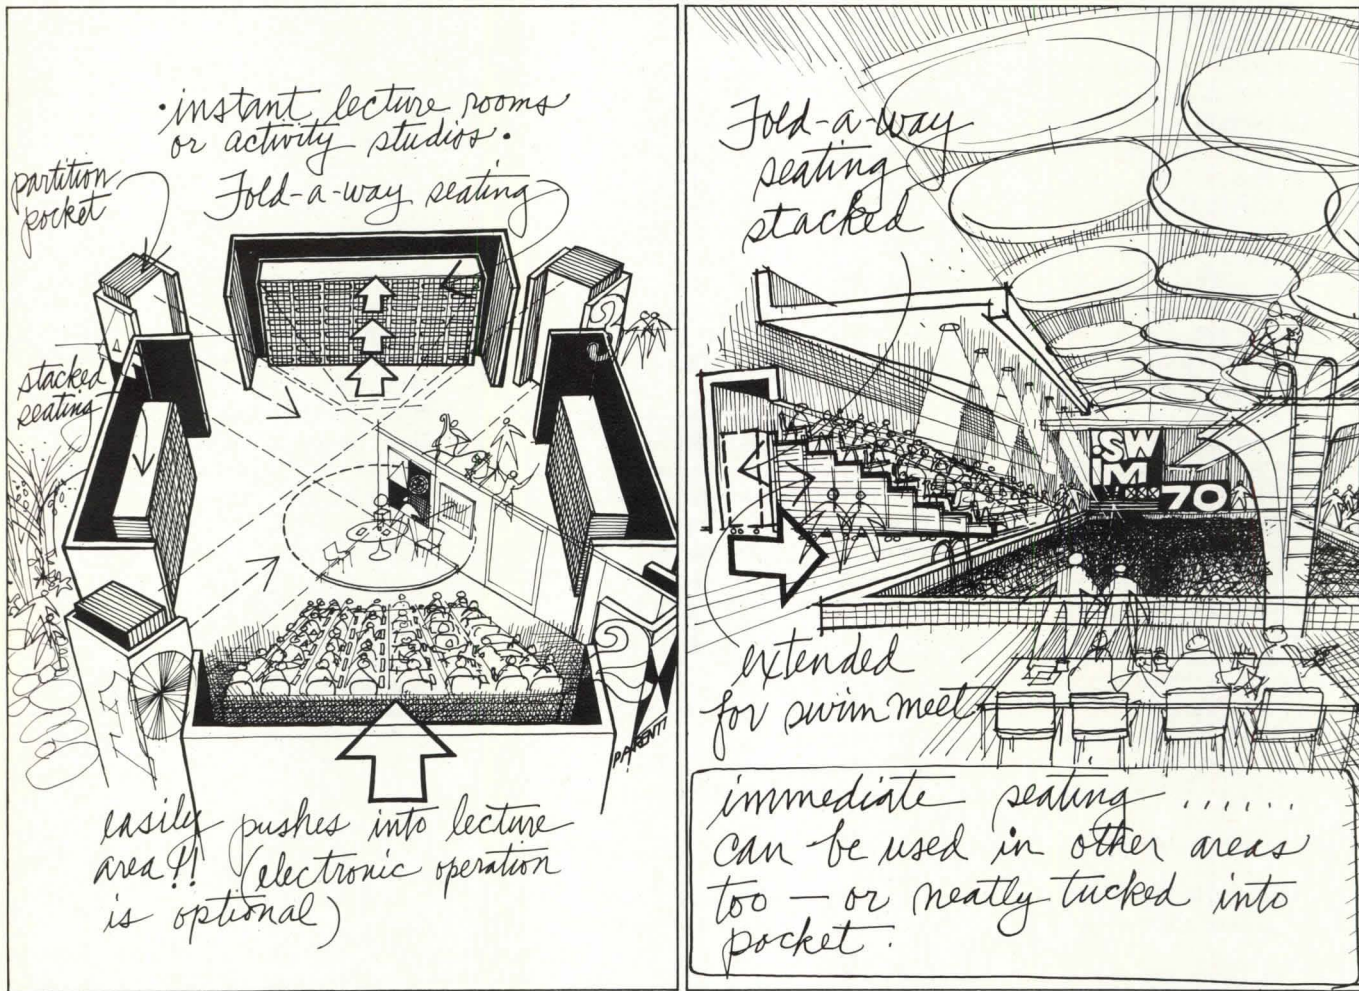 • instant lecture rooms
or activity studios •
Fold-a-way seating
partition
pocket
stacked
seating
PARENTI
easily pushes into lecture
area!! (electronic operation
is optional)
Fold-a-way
seating
stacked
•SW
iM
70
extended
for swim meet
immediate seating ......
can be used in other areas
too — or neatly tucked into
pocket.